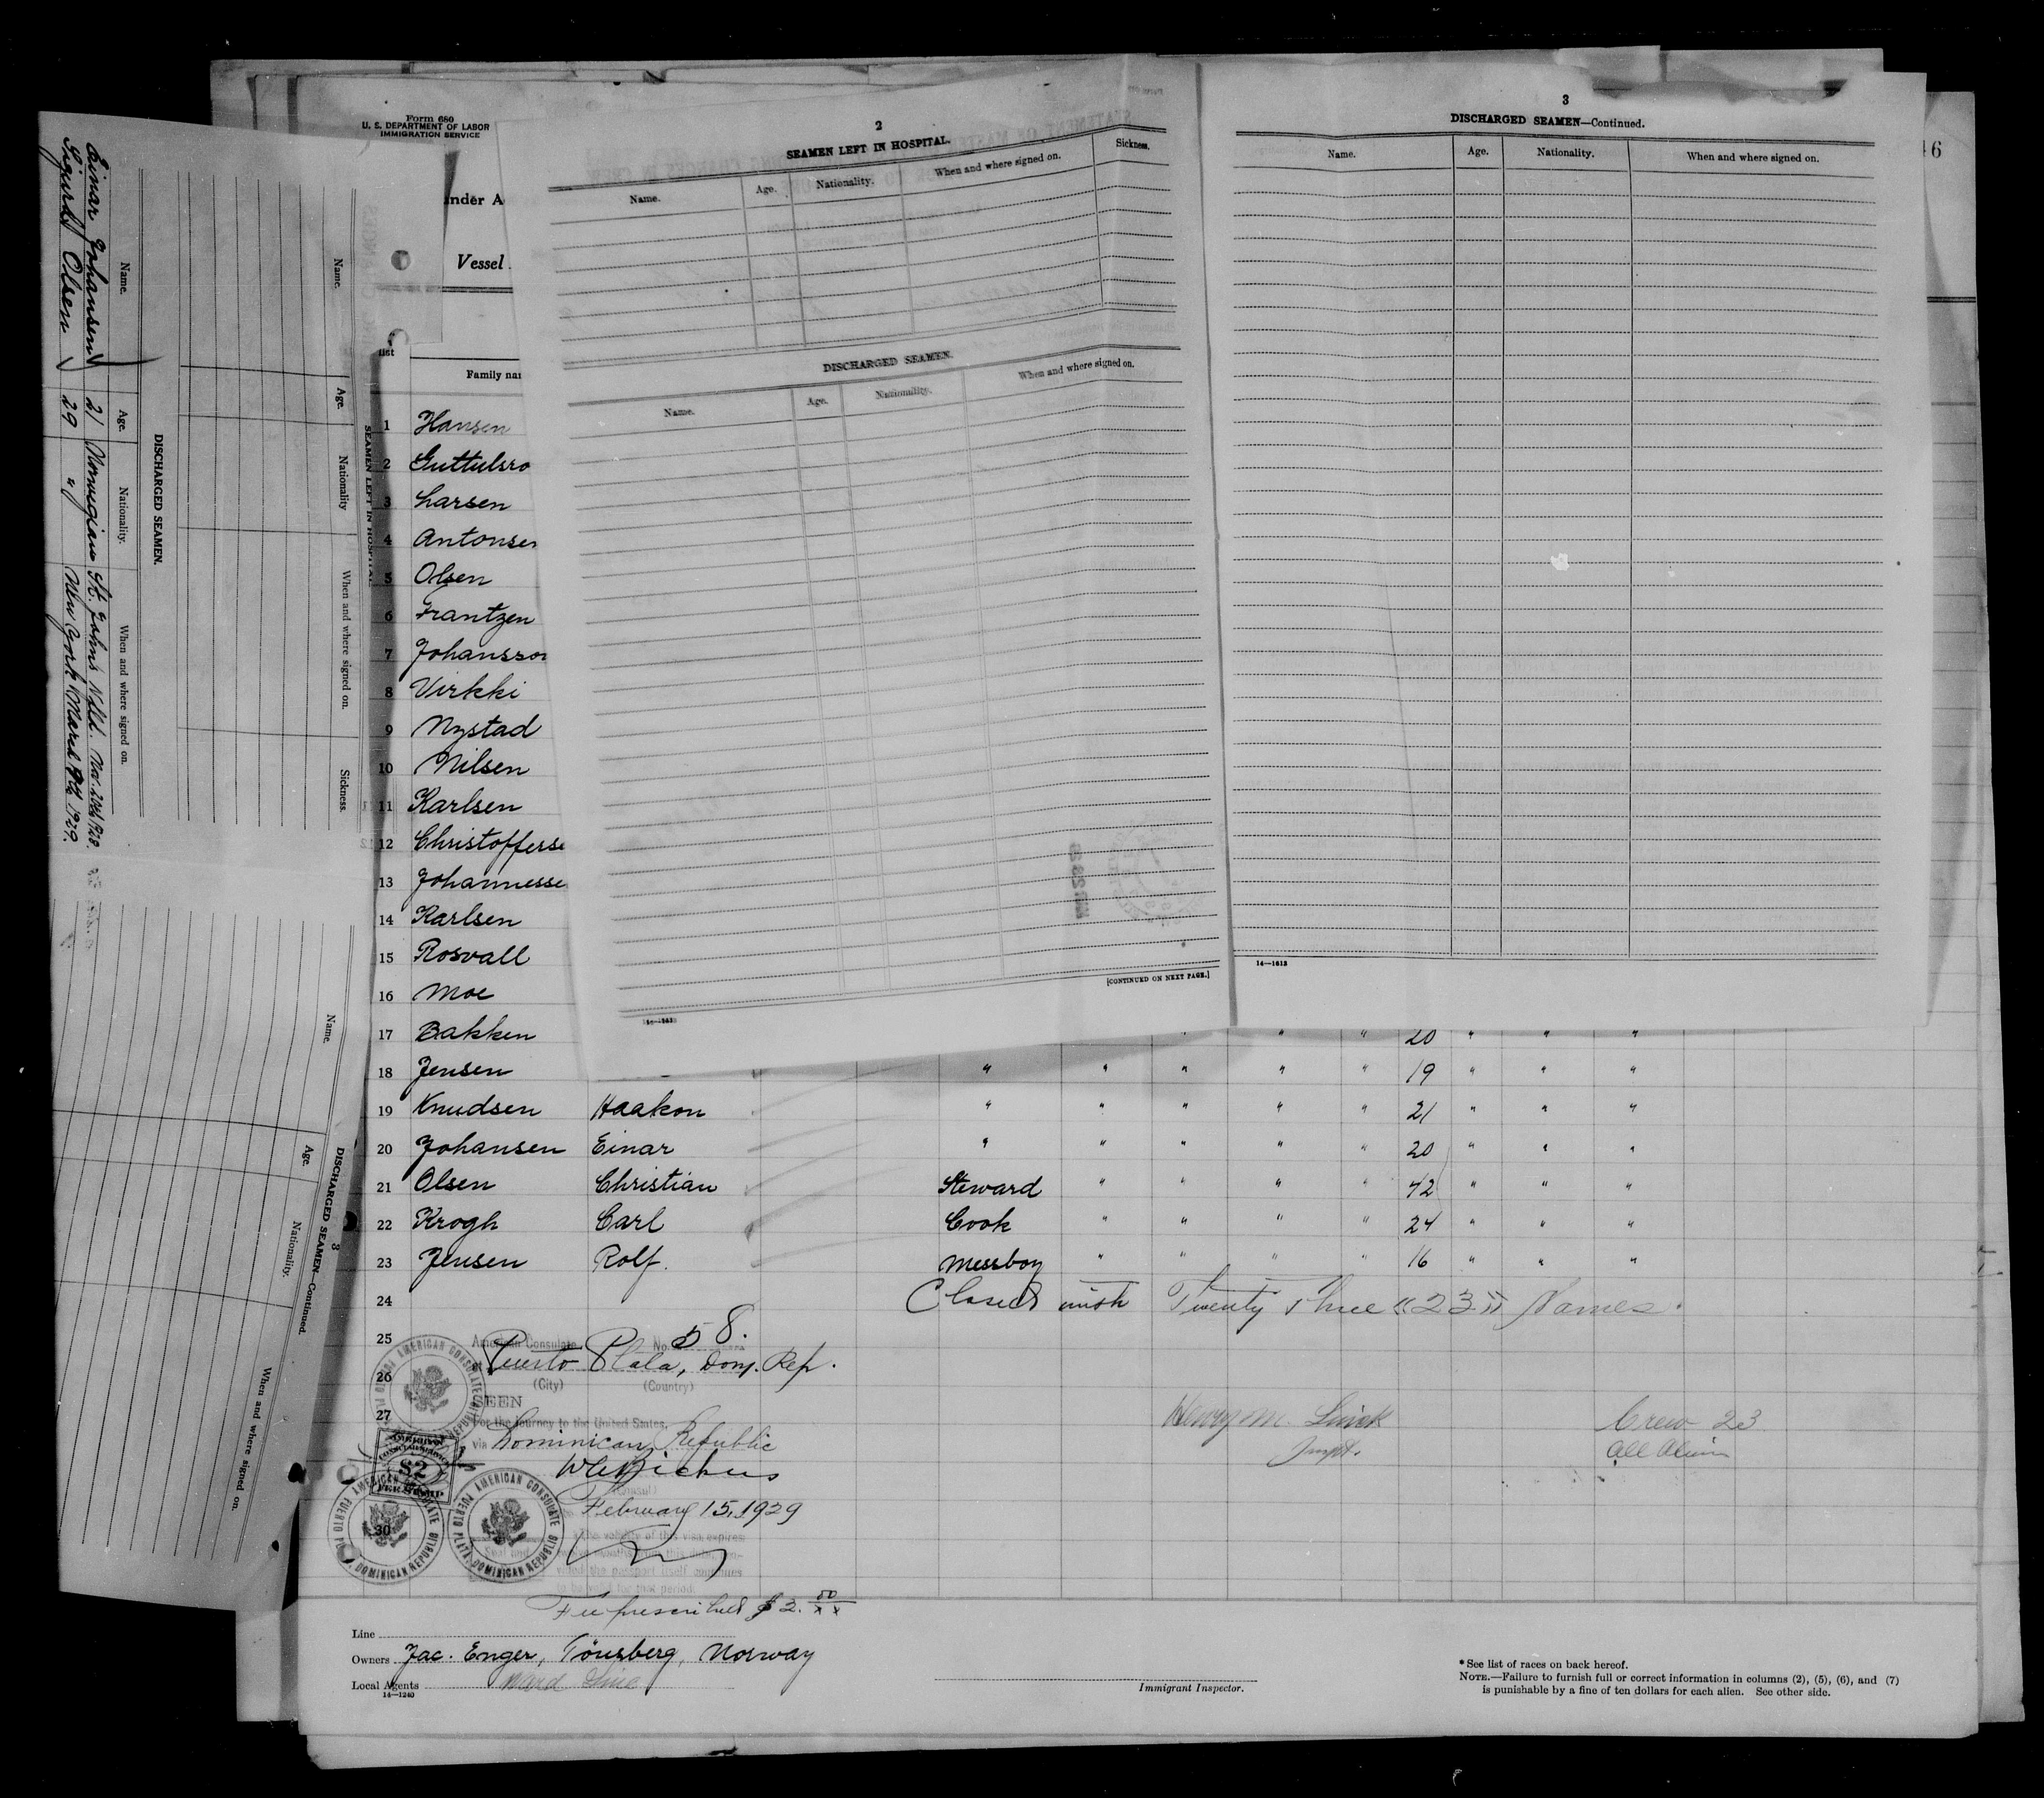 Form 680
U. S. DEPARTMENT OF LABOR
IMMIGRATION SERVICE
nder A
Vessel
list
Family nar
1 Hansen
2 Guttulsro
3 Larsen
4 Antonsen
5 Olsen
6 Frantzen
7 Johansson
8 Virkki
9 Nystad
10 Nilsen
11 Karlsen
12 Christofferse
13 Johannesse
14 Karlsen
15 Rosvall
16 Moe
17 Bakken " " 20 " " "
18 Jensen " " " " " 19 " " "
19 Knudsen Haakon " " " " " 21 " " "
20 Johansen Einar " " " " " 20 " " "
21 Olsen Christian Steward " " " " 42 " " "
22 Krogh Carl Cook " " " " 24 " " "
23 Jensen Rolf. Messboy " " " " 16 " " "
24 Closed with Twenty three "23" Names.
25
26
27
30
American Consulate No. 58.
at Puerto Plata, Dom. Rep.
(City) (Country)
EEN
For the journey to the United States,
via Dominican Republic
(Consul)
February 15, 1929
The validity of this visa expires
the passport itself continues
to be valid for that period.
AMERICAN CONSULATE
PUERTO PLATA, DOMINICAN REPUBLIC
$2
FEE STAMP
AMERICAN CONSULATE
PUERTO PLATA, DOMINICAN REPUBLIC
AMERICAN CONSULATE
PUERTO PLATA, DOMINICAN REPUBLIC
Fee prescribed $2.00
Henry M.
Inspt.
Crew 23
all alien
Line
Owners Jac. Enger, Tönsberg, Norway
Local Agents Ward Line
14—1240
Immigrant Inspector.
* See list of races on back hereof.
NOTE.—Failure to furnish full or correct information in columns (2), (5), (6), and (7)
is punishable by a fine of ten dollars for each alien. See other side.
2
SEAMEN LEFT IN HOSPITAL.
Name. Age. Nationality. When and where signed on. Sickness.
DISCHARGED SEAMEN.
Name. Age. Nationality. When and where signed on.
[CONTINUED ON NEXT PAGE.]
3
DISCHARGED SEAMEN—Continued.
Name. Age. Nationality. When and where signed on.
14—1613
46
SEAMEN LEFT IN HOSPITAL
Name. Age. Nationality When and where signed on. Sickness.
DISCHARGED SEAMEN.
Name. Age. Nationality. When and where signed on.
Einar Johansen 21 Norwegian St. Johns Nfld. Nov. 20th 1928.
Sigurd Olsen 29 " New York March 9th 1929.
3
DISCHARGED SEAMEN—Continued.
Name. Age. Nationality. When and where signed on.